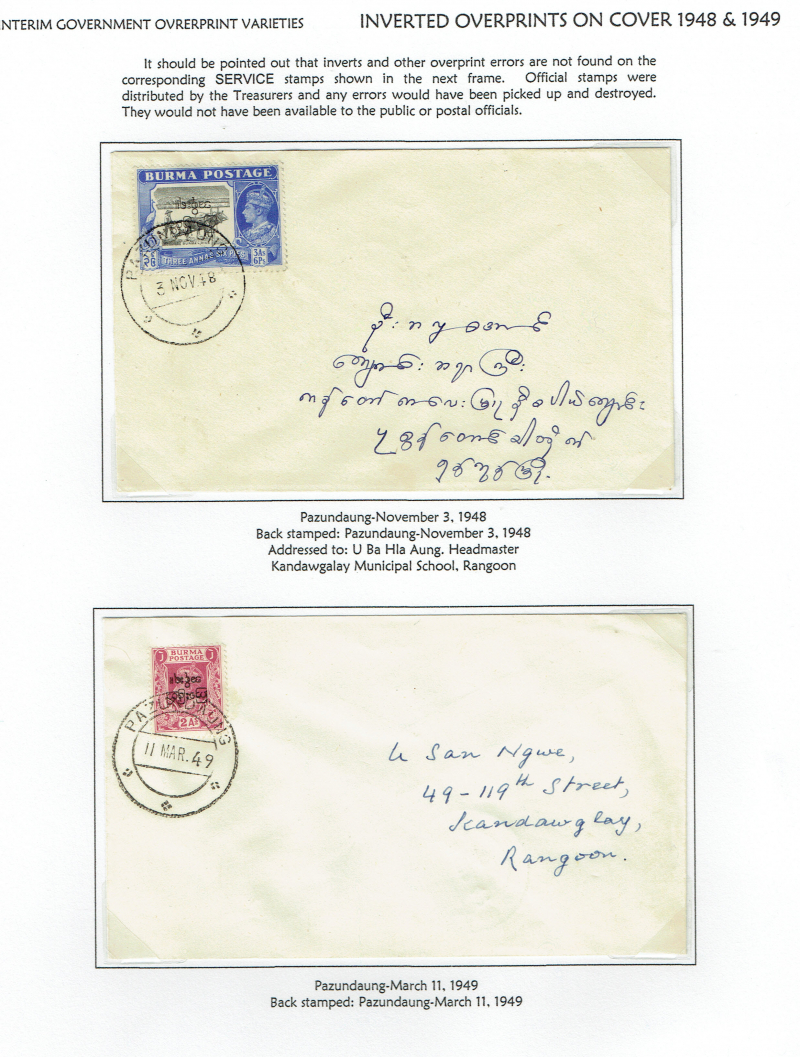 INTERIM GOVERNMENT OVRERPRINT VARIETIES
INVERTED OVERPRINTS ON COVER 1948 & 1949
It should be pointed out that inverts and other overprint errors are not found on the
corresponding SERVICE stamps shown in the next frame. Official stamps were
distributed by the Treasurers and any errors would have been picked up and destroyed.
They would not have been available to the public or postal officials.
BURMA POSTAGE
THREE ANNAS SIX PIES
3As
6Ps
PAZUNDAUNG
3 NOV.48
ဦးဘလှအောင်
ကျောင်းဆရာကြီး
ကန်တော်ကလေးမြူနီစပါယ်ကျောင်း
ရန်ကုန်မြို့
Pazundaung-November 3, 1948
Back stamped: Pazundaung-November 3, 1948
Addressed to: U Ba Hla Aung. Headmaster
Kandawgalay Municipal School, Rangoon
BURMA
POSTAGE
2As
PAZUNDAUNG
11 MAR.49
U San Ngwe,
49-119th Street,
Kandawglay,
Rangoon.
Pazundaung-March 11, 1949
Back stamped: Pazundaung-March 11, 1949